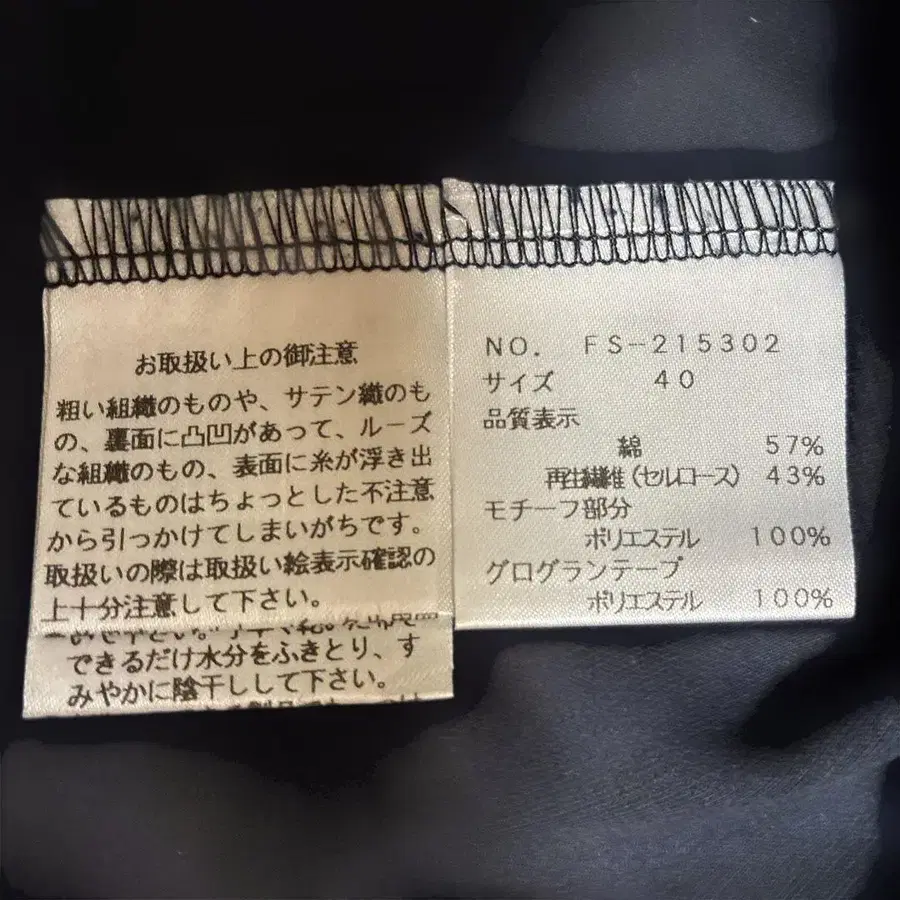 お取扱い上の御注意
粗い組織のものや、サテン織のも
の、裏面に凸凹があって、ルーズ
な組織のもの、表面に糸が浮き出
ているものはちょっとした不注意
から引っかけてしまいがちです。
取扱いの際は取扱い絵表示確認の
上十分注意して下さい。
できるだけ水分をふきとり、す
みやかに陰干しして下さい。
NO. FS-215302
サイズ 40
品質表示
綿 57%
再生繊維(セルロース) 43%
モチーフ部分
ポリエステル 100%
グログランテープ
ポリエステル 100%